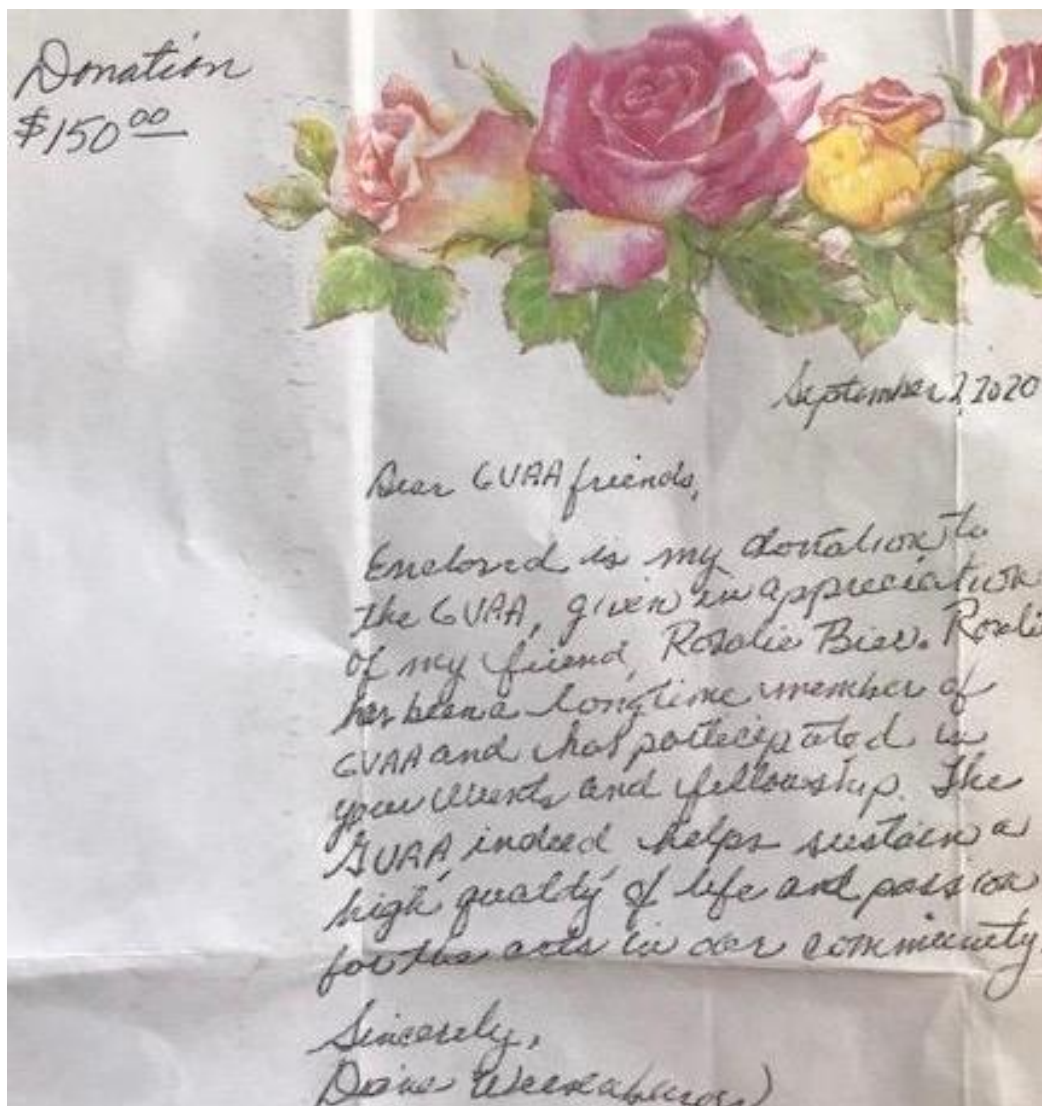 Donation
$150.00
September 2, 2020
Dear GVAA friends,
Enclosed is my donation to
the GVAA, given in appreciation
of my friend, Rosalie Bier. Rosali
has been a longtime member of
GVAA and has participated in
your events and fellowship. The
GVAA, indeed helps sustain a
high quality of life and passion
for the arts in our community.
Sincerely,
Diane